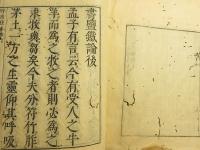 書鹽鐵論後
孟子有言云今有受人之牛
羊而爲之牧之者則必爲之
求牧與芻矣今夫分符行胙
茅土一方之生靈仰其呼吸